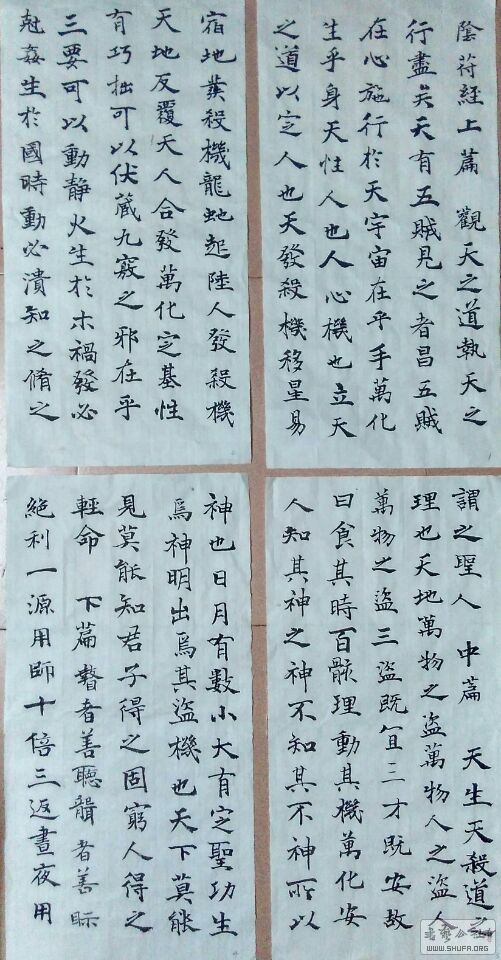 陰符經上篇 觀天之道執天之
行盡矣天有五賊見之者昌五賊
在心施行於天宇宙在乎手萬化
生乎身天性人也人心機也立天
之道以定人也天發殺機移星易
宿地發殺機龍虵起陸人發殺機
天地反覆天人合發萬化定基性
有巧拙可以伏藏九竅之邪在乎
三要可以動靜火生於木禍發必
尅姦生於國時動必潰知之脩之
謂之聖人 中篇 天生天殺道之
理也天地萬物之盜萬物人之盜人
萬物之盜三盜既宜三才既安故
曰食其時百骸理動其機萬化安
人知其神之神不知其不神所以
神也日月有數小大有定聖功生
焉神明出焉其盜機也天下莫能
見莫能知君子得之固窮人得之
輕命 下篇 瞽者善聽聾者善眎
絕利一源用師十倍三返晝夜用
WWW.SHUFA.ORG